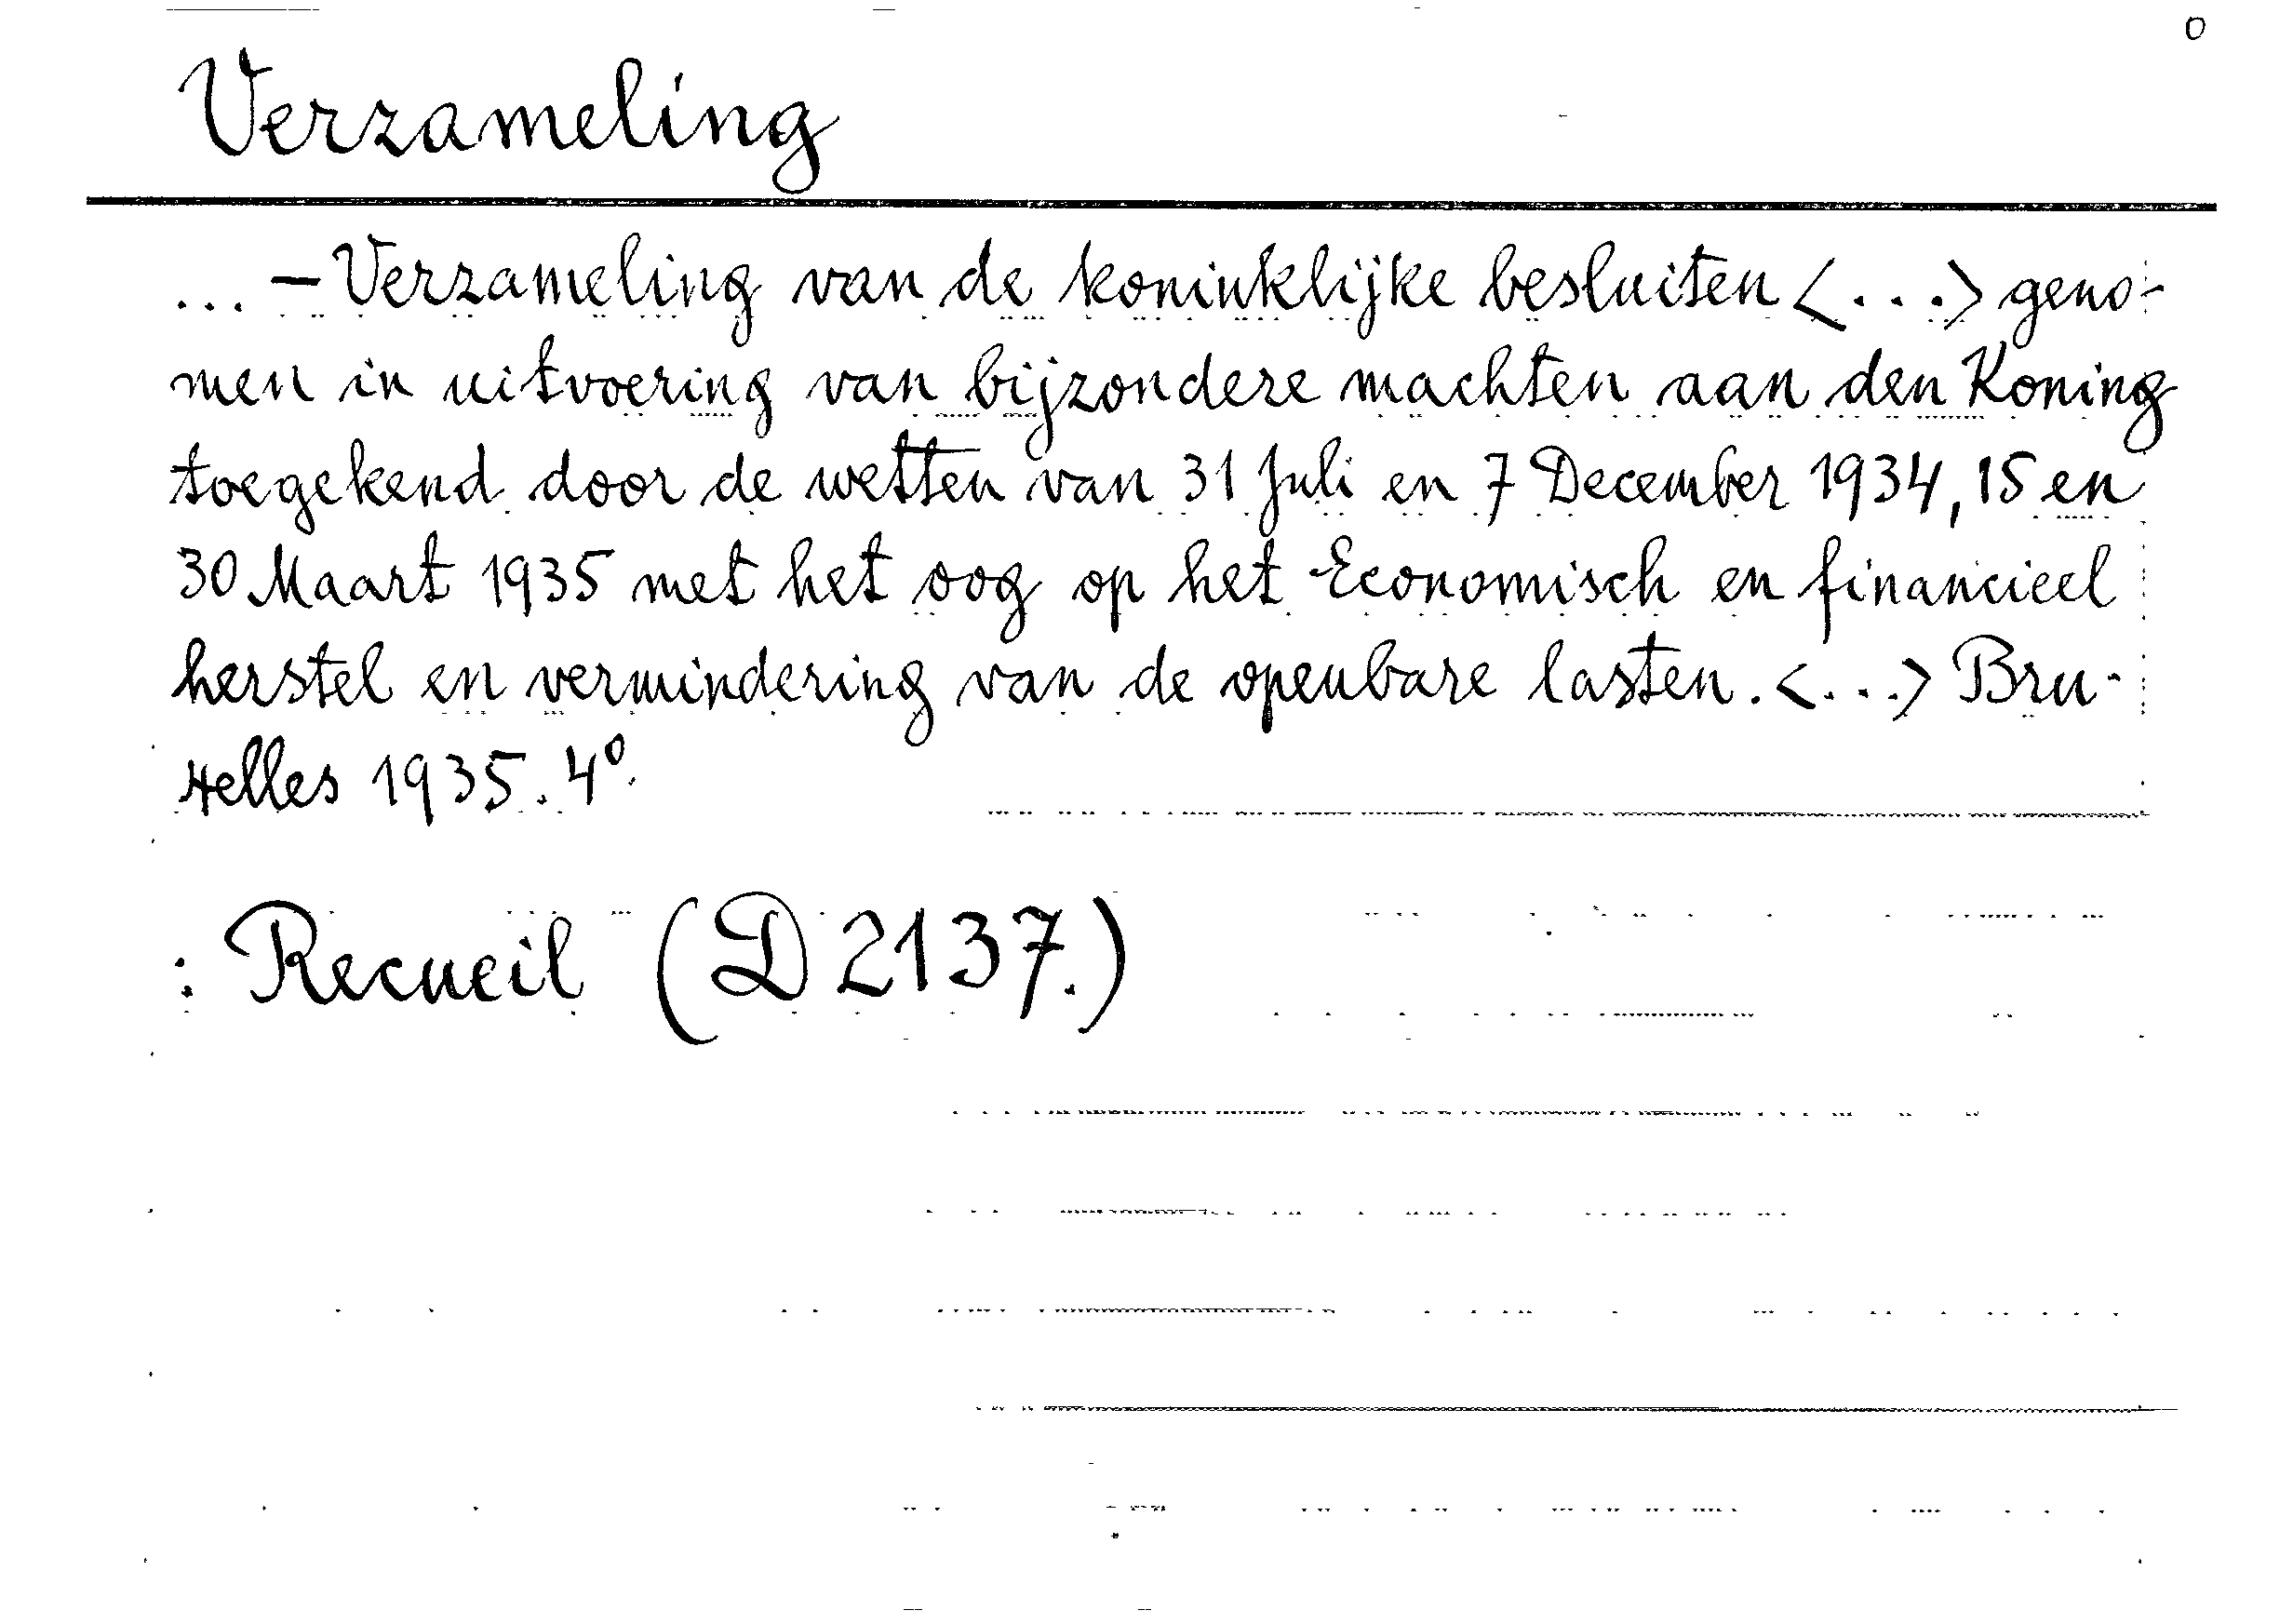 0
Verzameling
... – Verzameling van de koninklijke besluiten <...> geno-
men in uitvoering van bijzondere machten aan den Koning
toegekend door de wetten van 31 Juli en 7 December 1934, 15 en
30 Maart 1935 met het oog op het Economisch en financieel
herstel en vermindering van de openbare lasten. <...> Bru-
xelles 1935. 4°.
: Recueil (D 2137.)